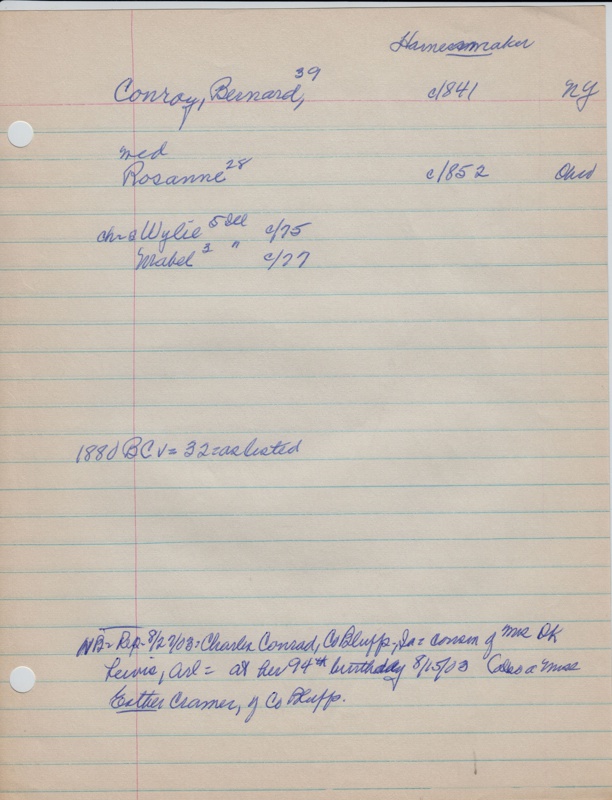 Harnessmaker
Conroy, Bernard, 39 c/841 NY
med
Rosanne 28 c/852 Ohio
ch= Wylie 5 Ill c/75
Mabel 3 " c/77
1880 BC v= 32= as listed
NB= Rep- 8/27/03= Charles Conrad, Co Bluffs, Ia= cousin of Mrs DK
Lewis, Arl= at her 94th birthday 8/15/03 Also a Miss
Esther Cramer, of Co Bluffs.